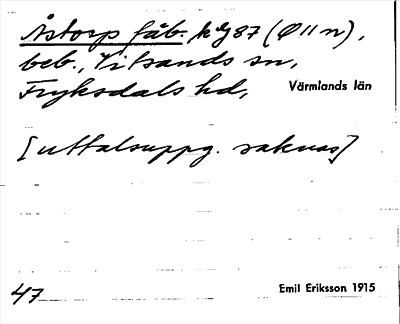 Åstorp fäb. kg 87 (Ø 11 n),
beb., Vitsands sn,
Fryksdals hd, Värmlands län
[uttalsuppg. saknas]
47 Emil Eriksson 1915